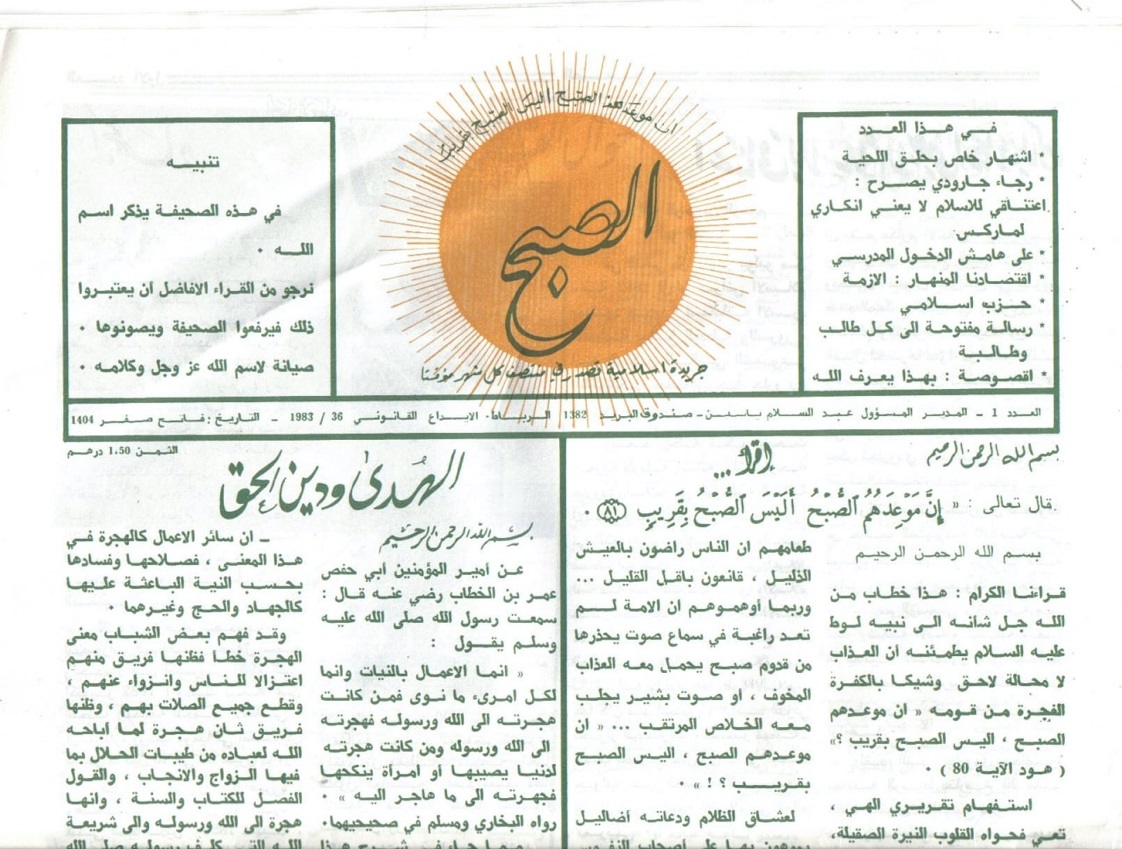 في هذا العدد
* اشهار خاص بحلق اللحية
* رجاء جارودي يصرح :
اعتناقي للاسلام لا يعني انكاري
لماركس.
* على هامش الدخول المدرسي
* اقتصادنا المنهار : الازمة
* حزب اسلامي
* رسالة مفتوحة الى كل طالب
وطالبة
* اقصوصة : بهذا يعرف الله
ان موعدهم الصبح اليس الصبح بقريب
الصبح
جريدة اسلامية تصدر في منتصف كل شهر مؤقتا
تنبيه
في هذه الصحيفة يذكر اسم
الله .
نرجو من القراء الافاضل أن يعتبروا
ذلك فيرفعوا الصحيفة ويصونوها .
صيانة لاسم الله عز وجل وكلامه .
العدد 1 - المدير المسؤول عبد السلام ياسين - صندوق البريد 1382 الرباط . الايداع القانوني 36 / 1983 - التاريخ : فاتح صفر 1404
بسم الله الرحمن الرحيم
اقرأ ...
قال تعالى : « إِنَّ مَوْعِدَهُمُ ٱلصُّبْحُ أَلَيْسَ ٱلصُّبْحُ بِقَرِيبٍ ﴿٨١﴾ .
بسم الله الرحمن الرحيم
قراءنا الكرام : هذا خطاب من
الله جل شانه الى نبيه لوط
عليه السلام يطمئنه ان العذاب
لا محالة لاحق وشيكا بالكفرة
الفجرة من قومه « ان موعدهم
الصبح ، اليس الصبح بقريب ؟»
( هود الآية 80 ) .
استفهام تقريري الهي ،
تعي فحواه القلوب النيرة الصقيلة،
طعامهم ان الناس راضون بالعيش
الذليل ، قانعون باقل القليل ...
وربما أوهموهم ان الامة لم
تعد راغبة في سماع صوت يحذرها
من قدوم صبح يحمل معه العذاب
المخوف ، او صوت بشير يجلب
معه الخلاص المرتقب .. « ان
موعدهم الصبح ، اليس الصبح
بقريب ؟ ! » .
لعشاق الظلام ودعاته اضاليل
الثمن 1،50 درهم
الهُدى ودين الحق
بسم الله الرحمن الرحيم
عن أمير المؤمنين أبي حفص
عمر بن الخطاب رضي عنه قال :
سمعت رسول الله صلى الله عليه
وسلم يقول :
« انما الاعمال بالنيات وانما
لكل امرىء ما نوى فمن كانت
هجرته الى الله ورسوله فهجرته
الى الله ورسوله ومن كانت هجرته
لدنيا يصيبها أو امرأة ينكحها
فهجرته الى ما هاجر اليه » .
رواه البخاري ومسلم في صحيحيهما.
- ان سائر الاعمال كالهجرة في
هذا المعنى ، فصلاحها وفسادها
بحسب النية الباعثة عليها
كالجهاد والحج وغيرهما .
وقد فهم بعض الشباب معنى
الهجرة خطأ فظنها فريق منهم
اعتزالا للناس وانزواء عنهم .
وقطع جميع الصلات بهم ، وظنها
فريق ثان هجرة لما أباحه
الله لعباده من طيبات الحلال بما
فيها الزواج والانجاب ، والقول
الفصل للكتاب والسنة ، وانها
هجرة الى الله ورسوله والى شريعة